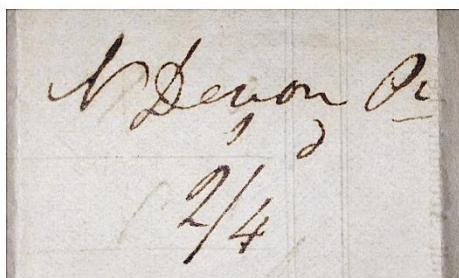 N Devon
s d
2/4